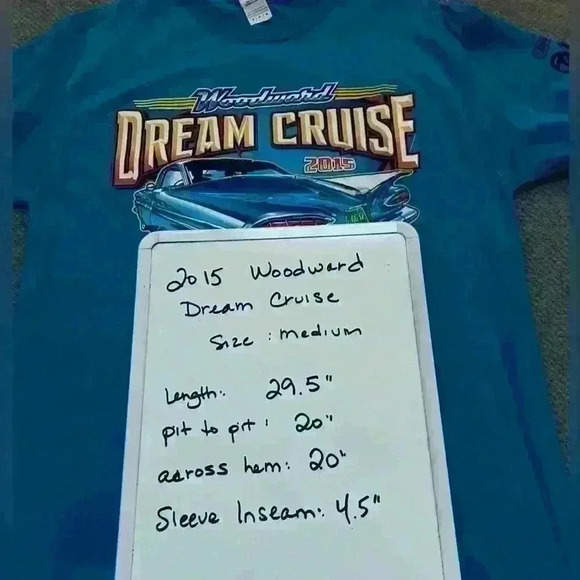 Woodward
DREAM CRUISE
2015
2015 Woodward
Dream Cruise
Size : medium
Length: 29.5"
pit to pit: 20"
across hem: 20"
Sleeve Inseam: 4.5"